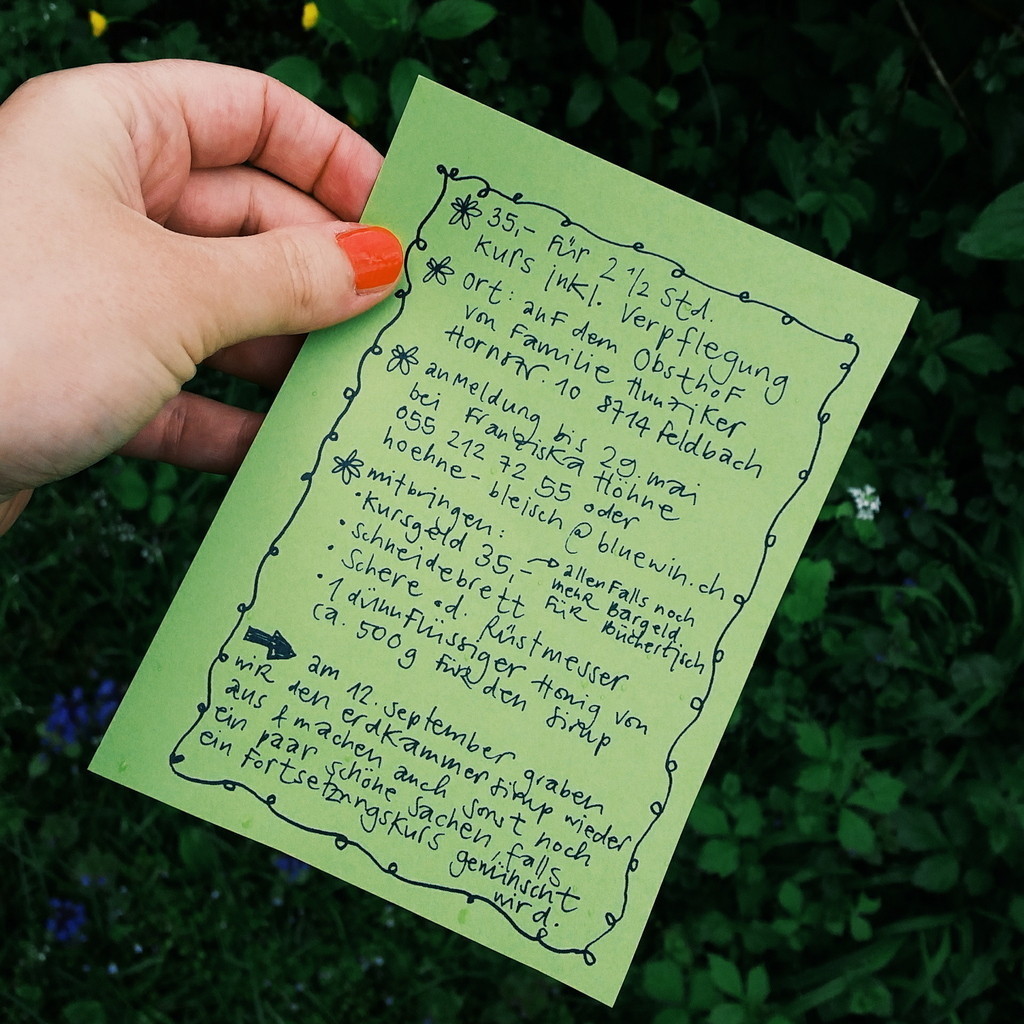 35,- für 2 1/2 Std.
Kurs inkl. Verpflegung
ort: auf dem Obsthof
von Familie Hunziker
Hornstr. 10 8714 Feldbach
anmeldung bis 29. mai
bei Franziska Höhne
055 212 72 55 oder
hoehne-bleisch@bluewin.ch
mitbringen:
• Kursgeld 35,- → allenfalls noch
mehr Bargeld
für Büchertisch
• Schneidebrett
• Schere od. Rüstmesser
• 1 dünnflüssiger Honig von
ca. 500g für den Sirup
➡ am 12. September graben
wir den erdkammersirup wieder
aus & machen auch sonst noch
ein paar schöne Sachen, falls
ein Fortsetzungskurs gewünscht
wird.